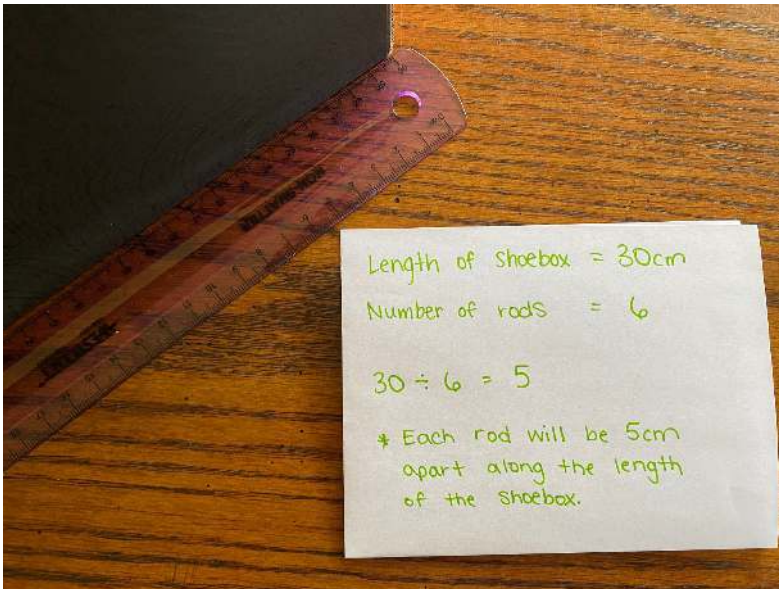 Length of Shoebox = 30cm
Number of rods = 6
30 ÷ 6 = 5
* Each rod will be 5cm
apart along the length
of the Shoebox.